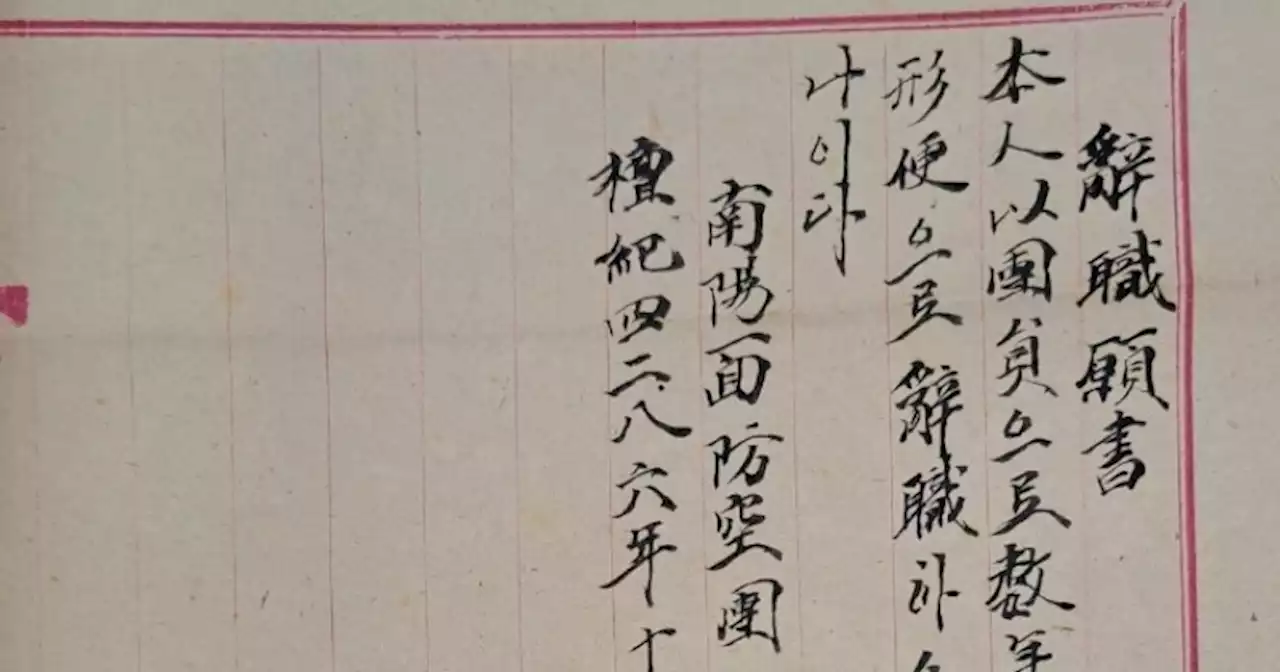 辭職願書
本人以團員으로数年
形便으로辭職하
나이다
南陽面防空團
檀紀四二八六年十